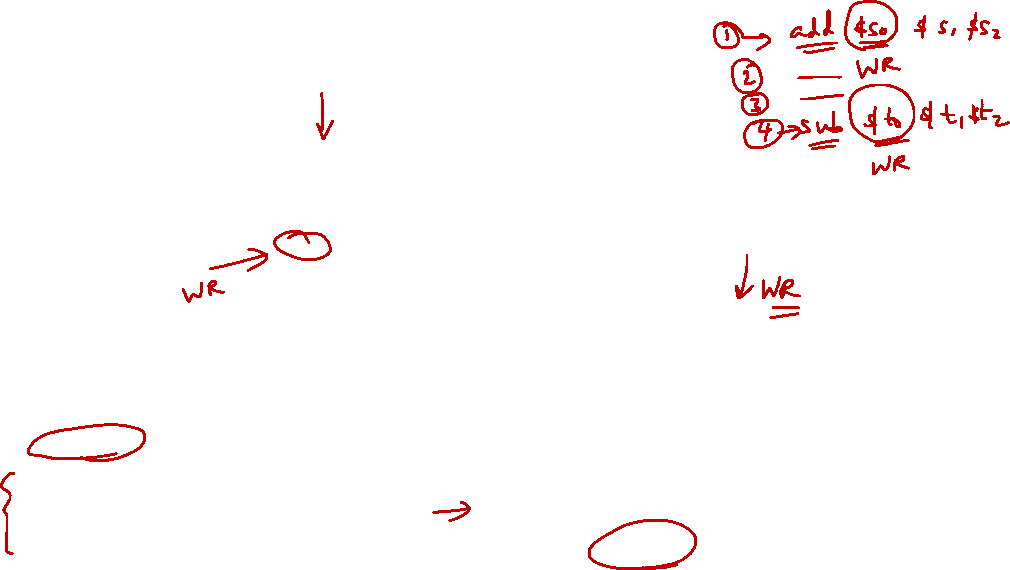 ① → add $s0 $s1, $s2
② — WR
③ —
④ → sub $t0 $t1, $t2
WR
WR
WR